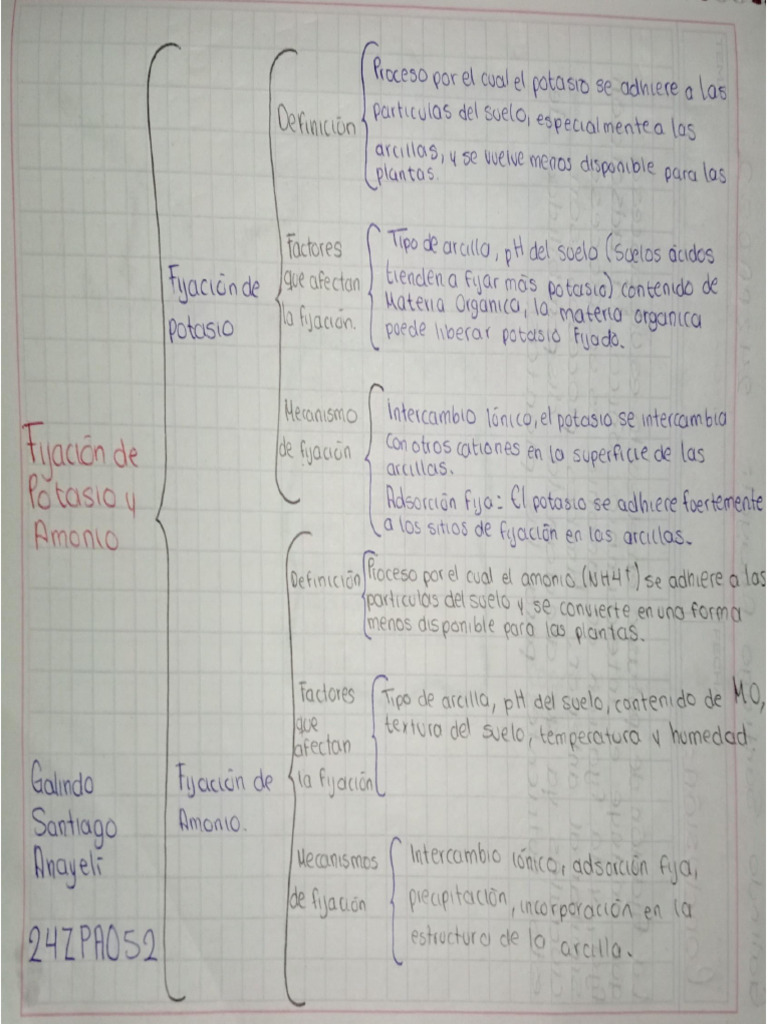 Fijación de
Potasio y
Amonio
Fijación de
potasio
Definición
Proceso por el cual el potasio se adhiere a las
particulas del suelo, especialmente a las
arcillas, y se vuelve menos disponible para las
plantas.
Factores
que afectan
la fijación.
Tipo de arcilla, pH del suelo (Suelos ácidos
tienden a fijar más potasio) contenido de
Materia Organica, la materia organica
puede liberar potasio fijado.
Mecanismo
de fijación
Intercambio Iónico, el potasio se intercambia
con otros cationes en la superficie de las
arcillas.
Adsorción fija: El potasio se adhiere fuertemente
a los sitios de fijación en los arcillas.
Fijación de
Amonio.
Definición
Proceso por el cual el amonio (NH4+) se adhiere a las
particulas del suelo y se convierte en una forma
menos disponible para las plantas.
Factores
que
afectan
la fijación
Tipo de arcilla, pH del suelo, contenido de MO,
textura del suelo, temperatura y humedad
Mecanismos
de fijación
Intercambio iónico, adsorción fija,
precipitación, incorporación en la
estructura de la arcilla.
Galindo
Santiago
Anayeli
24ZPA052